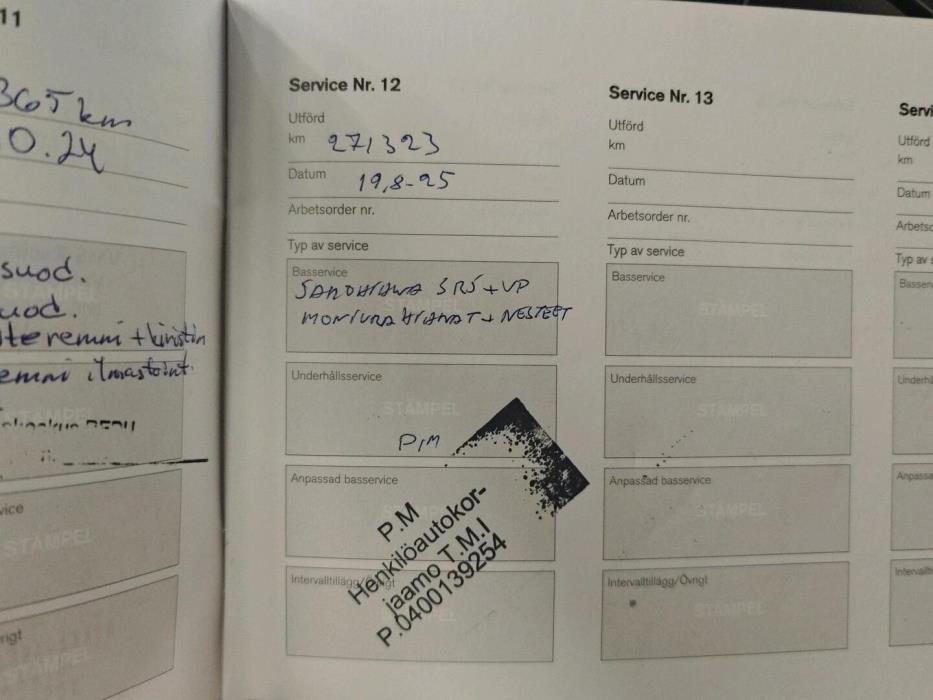 11
365 km
0.24
suod.
uod.
emmi ilmastoint.
STÄMPEL
STÄMPEL
Service Nr. 12
Utförd
km 271323
Datum 19,8-25
Arbetsorder nr.
Typ av service
Basservice
STÄMPEL
MONIURAHIHNAT + NESTEET
Underhållsservice
STÄMPEL
P.M
Anpassad basservice
Intervalltillägg/Övrigt
P.M
Henkilöautokor-
jaamo T.M.I
P.0400139254
Service Nr. 13
Utförd
km
Datum
Arbetsorder nr.
Typ av service
Basservice
STÄMPEL
Underhållsservice
STÄMPEL
Anpassad basservice
STÄMPEL
Intervalltillägg/Övrigt
STÄMPEL
Servi
Utförd
km
Datum
Arbetso
Typ av s
Basserv
Underhå
Anpassa
Intervallti